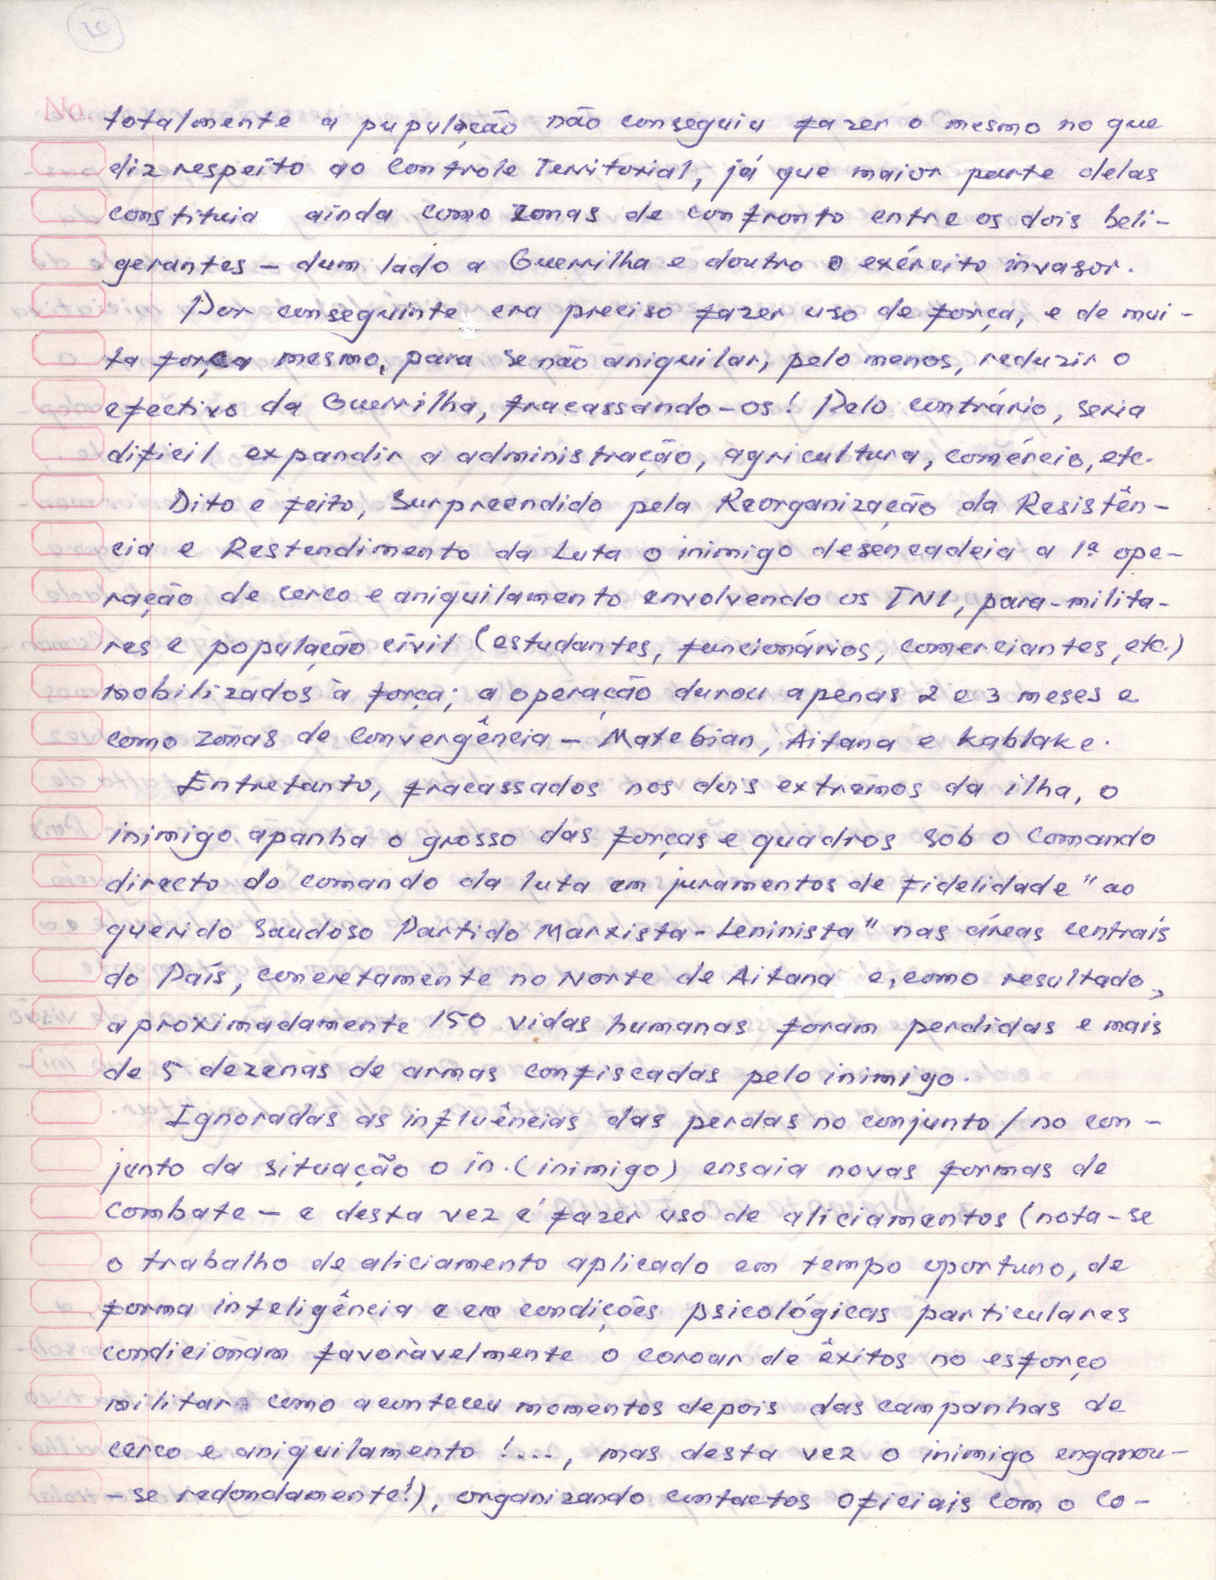 totalmente a pupulação não conseguiu fazer o mesmo no que
diz respeito ao Controle Territorial, já que maior parte delas
constituia ainda como zonas de confronto entre os dois beli-
gerantes - dum lado a Guerrilha e doutro o exército invasor.
Por conseguinte era preciso fazer uso de força, e de mui-
ta força mesmo, para se não aniquilar, pelo menos, reduzir o
efectivo da Guerrilha, fracassando-os! Pelo contrário, seria
dificil expandir a administração, agricultura, comércio, etc.
Dito e feito, Surpreendido pela Reorganização da Resistên-
cia e Restendimento da Luta o inimigo desencadeia a 1ª ope-
ração de cerco e aniquilamento envolvendo os TNI, para-milita-
res e população civil (estudantes, funcionários, comerciantes, etc.)
mobilizados à força; a operação durou apenas 2 e 3 meses e
como zonas de convergência - Matebian, Aitana e Kablake.
Entretanto, fracassados nos dois extremos da ilha, o
inimigo apanha o grosso das forças e quadros sob o Comando
directo do comando da luta em juramentos de fidelidade "ao
querido Saudoso Partido Marxista-Leninista" nas áreas centrais
do País, concretamente no Norte de Aitana e, como resultado,
aproximadamente 150 vidas humanas foram perdidas e mais
de 5 dezenas de armas confiscadas pelo inimigo.
Ignoradas as influências das perdas no conjunto / no con-
junto da situação o in. (inimigo) ensaia novas formas de
Combate - e desta vez é fazer uso de aliciamentos (nota-se
o trabalho de aliciamento aplicado em tempo oportuno, de
forma inteligência e em condições psicológicas particulares
condicionam favoràvelmente o coroar de êxitos no esforço
militar como aconteceu momentos depois das campanhas de
cerco e aniquilamento !..., mas desta vez o inimigo enganou-
-se redondamente!), organizando contactos Oficiais com o Co-